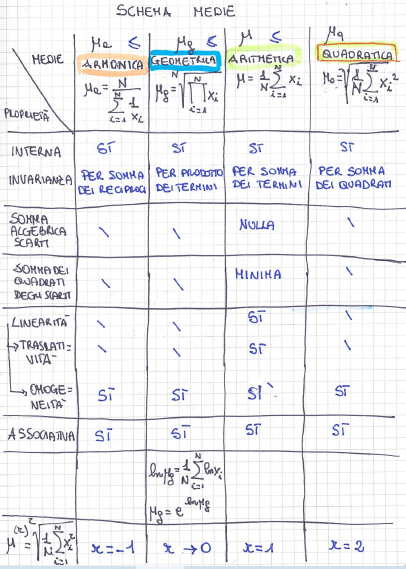 SCHEMA MEDIE
MEDIE
PROPRIETÀ
μa ≤
ARMONICA
μa = N / N∑i=1 1/xi
μg ≤
GEOMETRICA
μg = N√N∏i=1 xi
μ ≤
ARITMETICA
μ = 1/N N∑i=1 xi
μq
QUADRATICA
μQ = √1/N N∑i=1 xi²
INTERNA SÌ SÌ SÌ SÌ
INVARIANZA PER SOMMA DEI RECIPROCI PER PRODOTTO DEI TERMINI PER SOMMA DEI TERMINI PER SOMMA DEI QUADRATI
SOMMA
ALGEBRICA \ \ NULLA \
SCARTI
SOMMA DEI
QUADRATI \ \ MINIMA \
DEGLI SCARTI
LINEARITÀ \ \ SÌ \
→ TRASLATI=
VITÀ \ \ SÌ \
→ OMOGE=
NEITÀ SÌ SÌ SÌ SÌ
ASSOCIATIVA SÌ SÌ SÌ SÌ
ln μg = 1/N N∑i=1 ln xi
μg = e^ln μg
μ(r) = r√1/N N∑i=1 xi^r r = -1 r → 0 r = 1 r = 2